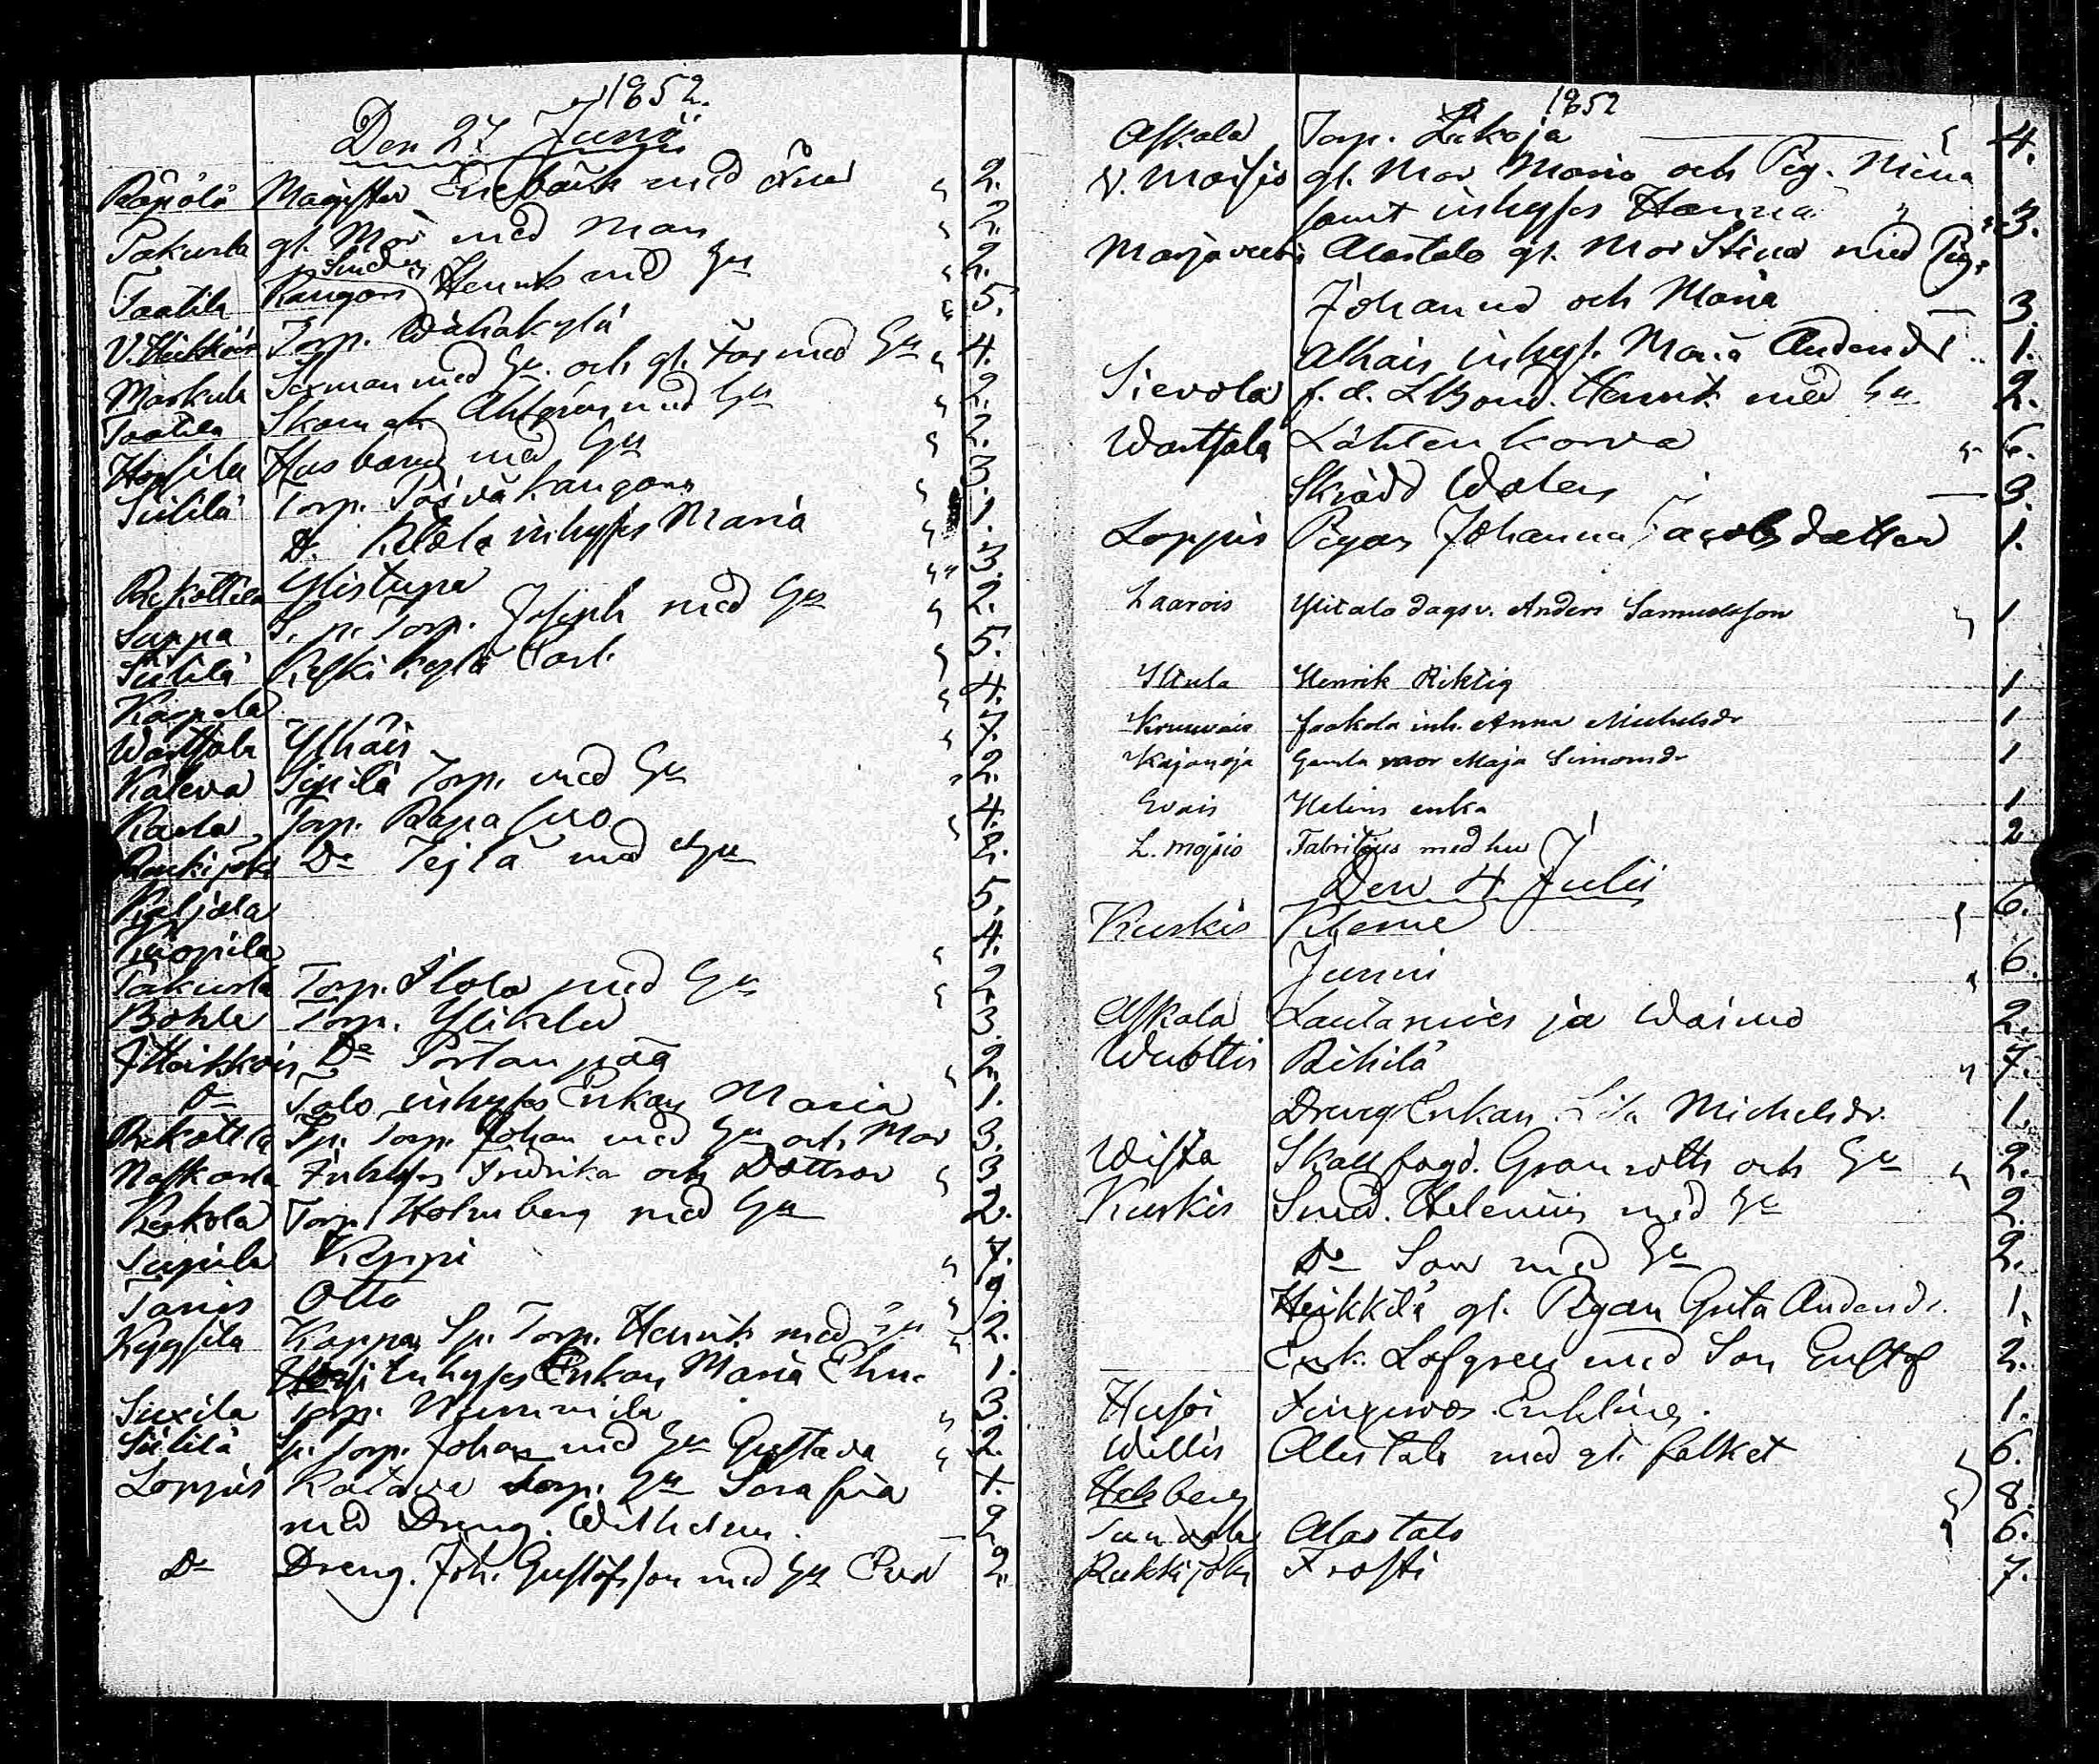 1852.
Den 27 Junii
Räpälä Magister Enebäck med Fru 2.
Pakurla gl. Mor med Man 2.
Taatila Kangars Smeden Henrik med Hu 2.
V. Heikkois Torp. Wähäkylä 5.
Markula Sexman med Hu. och gl. Far med Hu 4.
Taatila Skom ak Ahlgren med Hu 2.
Hopsila Husband med Hu 2.
Siitilä Torp. Päiväkangons 3.
D. Ketola inhyses Maria 1.
Rekottila Ylistupa 3.
Suppa S. p. Torp. Joseph med Hu 2.
Siitilä Keskikylä Torp. 5.
Kaspela 4.
Wartsala Ylhäis 7.
Kaleva Sipilä Torp. med Hu 2.
Karla Torp. Papa 4.
Ruckijoki Do Tejlä med Hu 2.
Kaljala 5.
Knopila 4.
Pakurla Torp. Alola med Hu 2.
Böhle Torp. Ylikylä 3.
Heikkois Do Portanpää 2.
Do Talo inhyses Enkan Maria 1.
Rekottila Sp. Torp. Johan med Hu och Mor 3.
Naskarla Inhyses Fredrika och Dottror 3
Kerkola Torp. Holmberg med Hu 2.
Tupila Keppi 7.
Tanis Otto 9.
Kyysila Kappas Sp. Torp. Henrik med Hu 2.
Inhyses Enkan Maria 1.
Suxila Torp. Nummila 3.
Siitilä Sp. Torp. Johan med Hu Gustava 2.
Loppis Ratava Torp. Hu Serafia
med Dreng. Wilhelm. 2
Do Dreng. Joh. Gustafsson med Hu Eva 2.
1852
Askala Torp. Likoja 4.
N. Moisio gl. Mor Maria och Pig. Mina
samt inhyses Hanna 3.
Marjavuori Alastalo gl. Mor Stina med Pig.
Johanna och Maria 3.
Alhais inhys. Maria Andersdr 1.
Sievola f. d. LBond. Henrik med Hu 2.
Wartsala Lähtenkorva 6.
Skrädd Walen 3.
Loppis Pigan Johanna Jacobsdotter 1.
Laarois Ylitalo dagsv. Anders Samuelsson 1
Ittula Henrik Riktig 1
Kruuvais Jaakola inh. Anna Michelsdr 1
Kajanoja Gamla mor Maja Simonsdr 1
Evais Helins enka 1
L. mojsio Fabritius med hu 2
Den 4 Julii
Kurkis Kleme 6.
Junni 6.
Askala Lautamies ja Waimo 2.
Wuoltis Rihilä 7.
Dreng Enkan Lisa Michelsdr. 1.
Wista Skallfogd. Granroth och Hu 2.
Kurkis Smed. Helenius med Hu 2.
Do Son med Hu 2.
Heikkilä gl. Pigan Greta Andersdr. 1.
Enk. Lofgren med Son Gustaf 2.
Husoi Enkling. 1.
Willis Alastalo med gl. folket 6.
Helsberg 8.
Alastalo 6.
Rukkijoki Frosti 7.